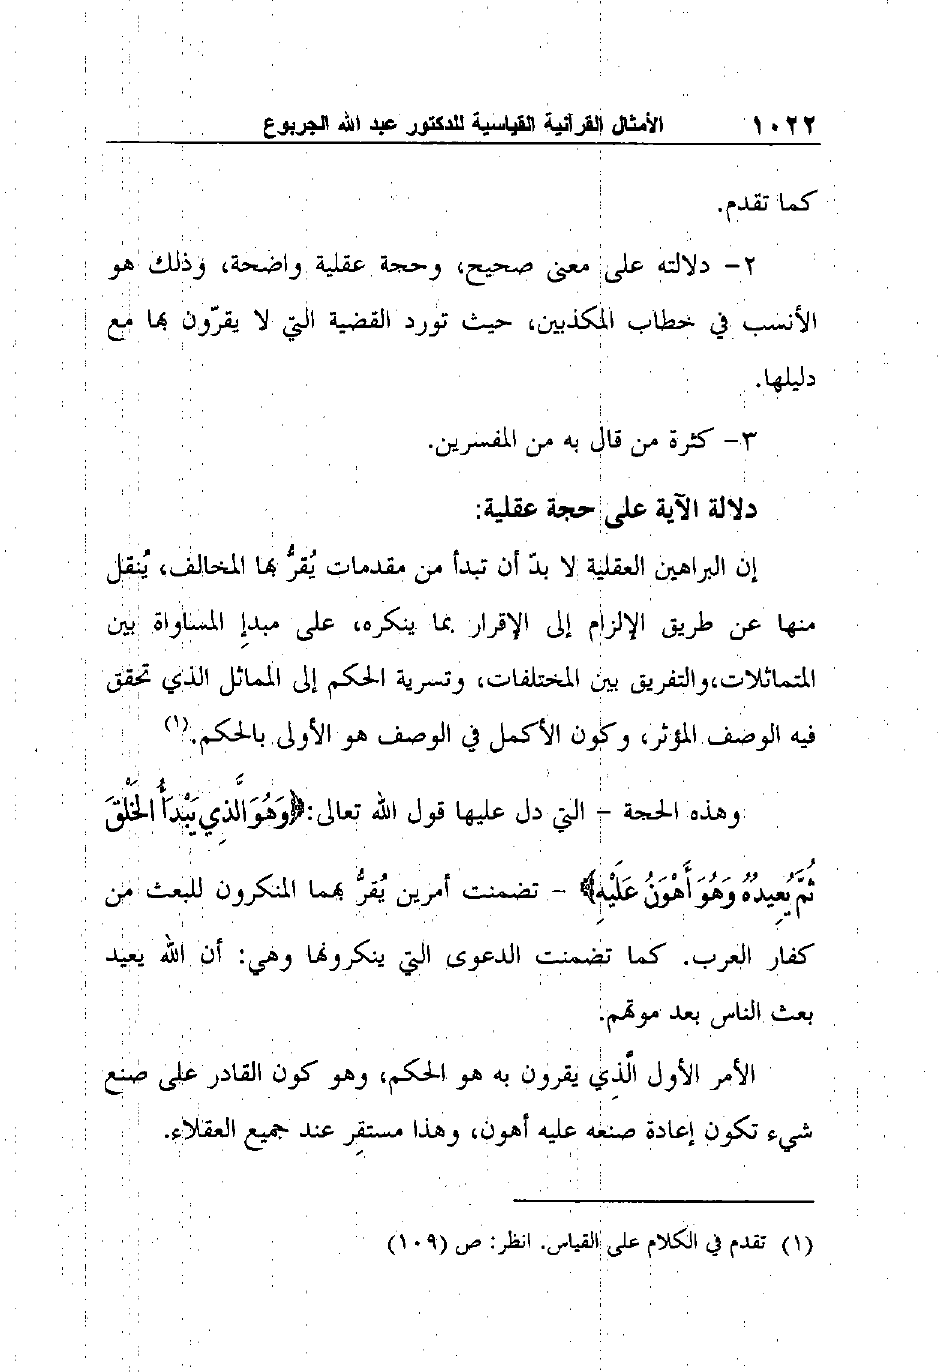 ١٠٢٢ الأمثال القرآنية القياسية للدكتور عبد الله الجربوع
كما تقدم.
٢- دلالته على معنى صحيح، وحجة عقلية واضحة، وذلك هو
الأنسب في خطاب المكذبين، حيث تورد القضية التي لا يقرّون بها مع
دليلها.
٣- كثرة من قال به من المفسرين.
دلالة الآية على حجة عقلية:
إن البراهين العقلية لا بدّ أن تبدأ من مقدمات يُقرُّ بها المخالف، يُنقل
منها عن طريق الإلزام إلى الإقرار بما ينكره، على مبدإ المساواة بين
المتماثلات، والتفريق بين المختلفات، وتسرية الحكم إلى المماثل الذي تحقق
فيه الوصف المؤثر، وكون الأكمل في الوصف هو الأولى بالحكم.(١)
وهذه الحجة - التي دل عليها قول الله تعالى: ﴿وَهُوَ الَّذِي يَبْدَأُ الْخَلْقَ
ثُمَّ يُعِيدُهُ وَهُوَ أَهْوَنُ عَلَيْهِ﴾ - تضمنت أمرين يُقرُّ بهما المنكرون للبعث من
كفار العرب. كما تضمنت الدعوى التي ينكرونها وهي: أن الله يعيد
بعث الناس بعد موتهم.
الأمر الأول الَّذِي يقرون به هو الحكم، وهو كون القادر على صنع
شيء تكون إعادة صنعه عليه أهون، وهذا مستقر عند جميع العقلاء.
(١) تقدم في الكلام على القياس. انظر: ص (١٠٩)